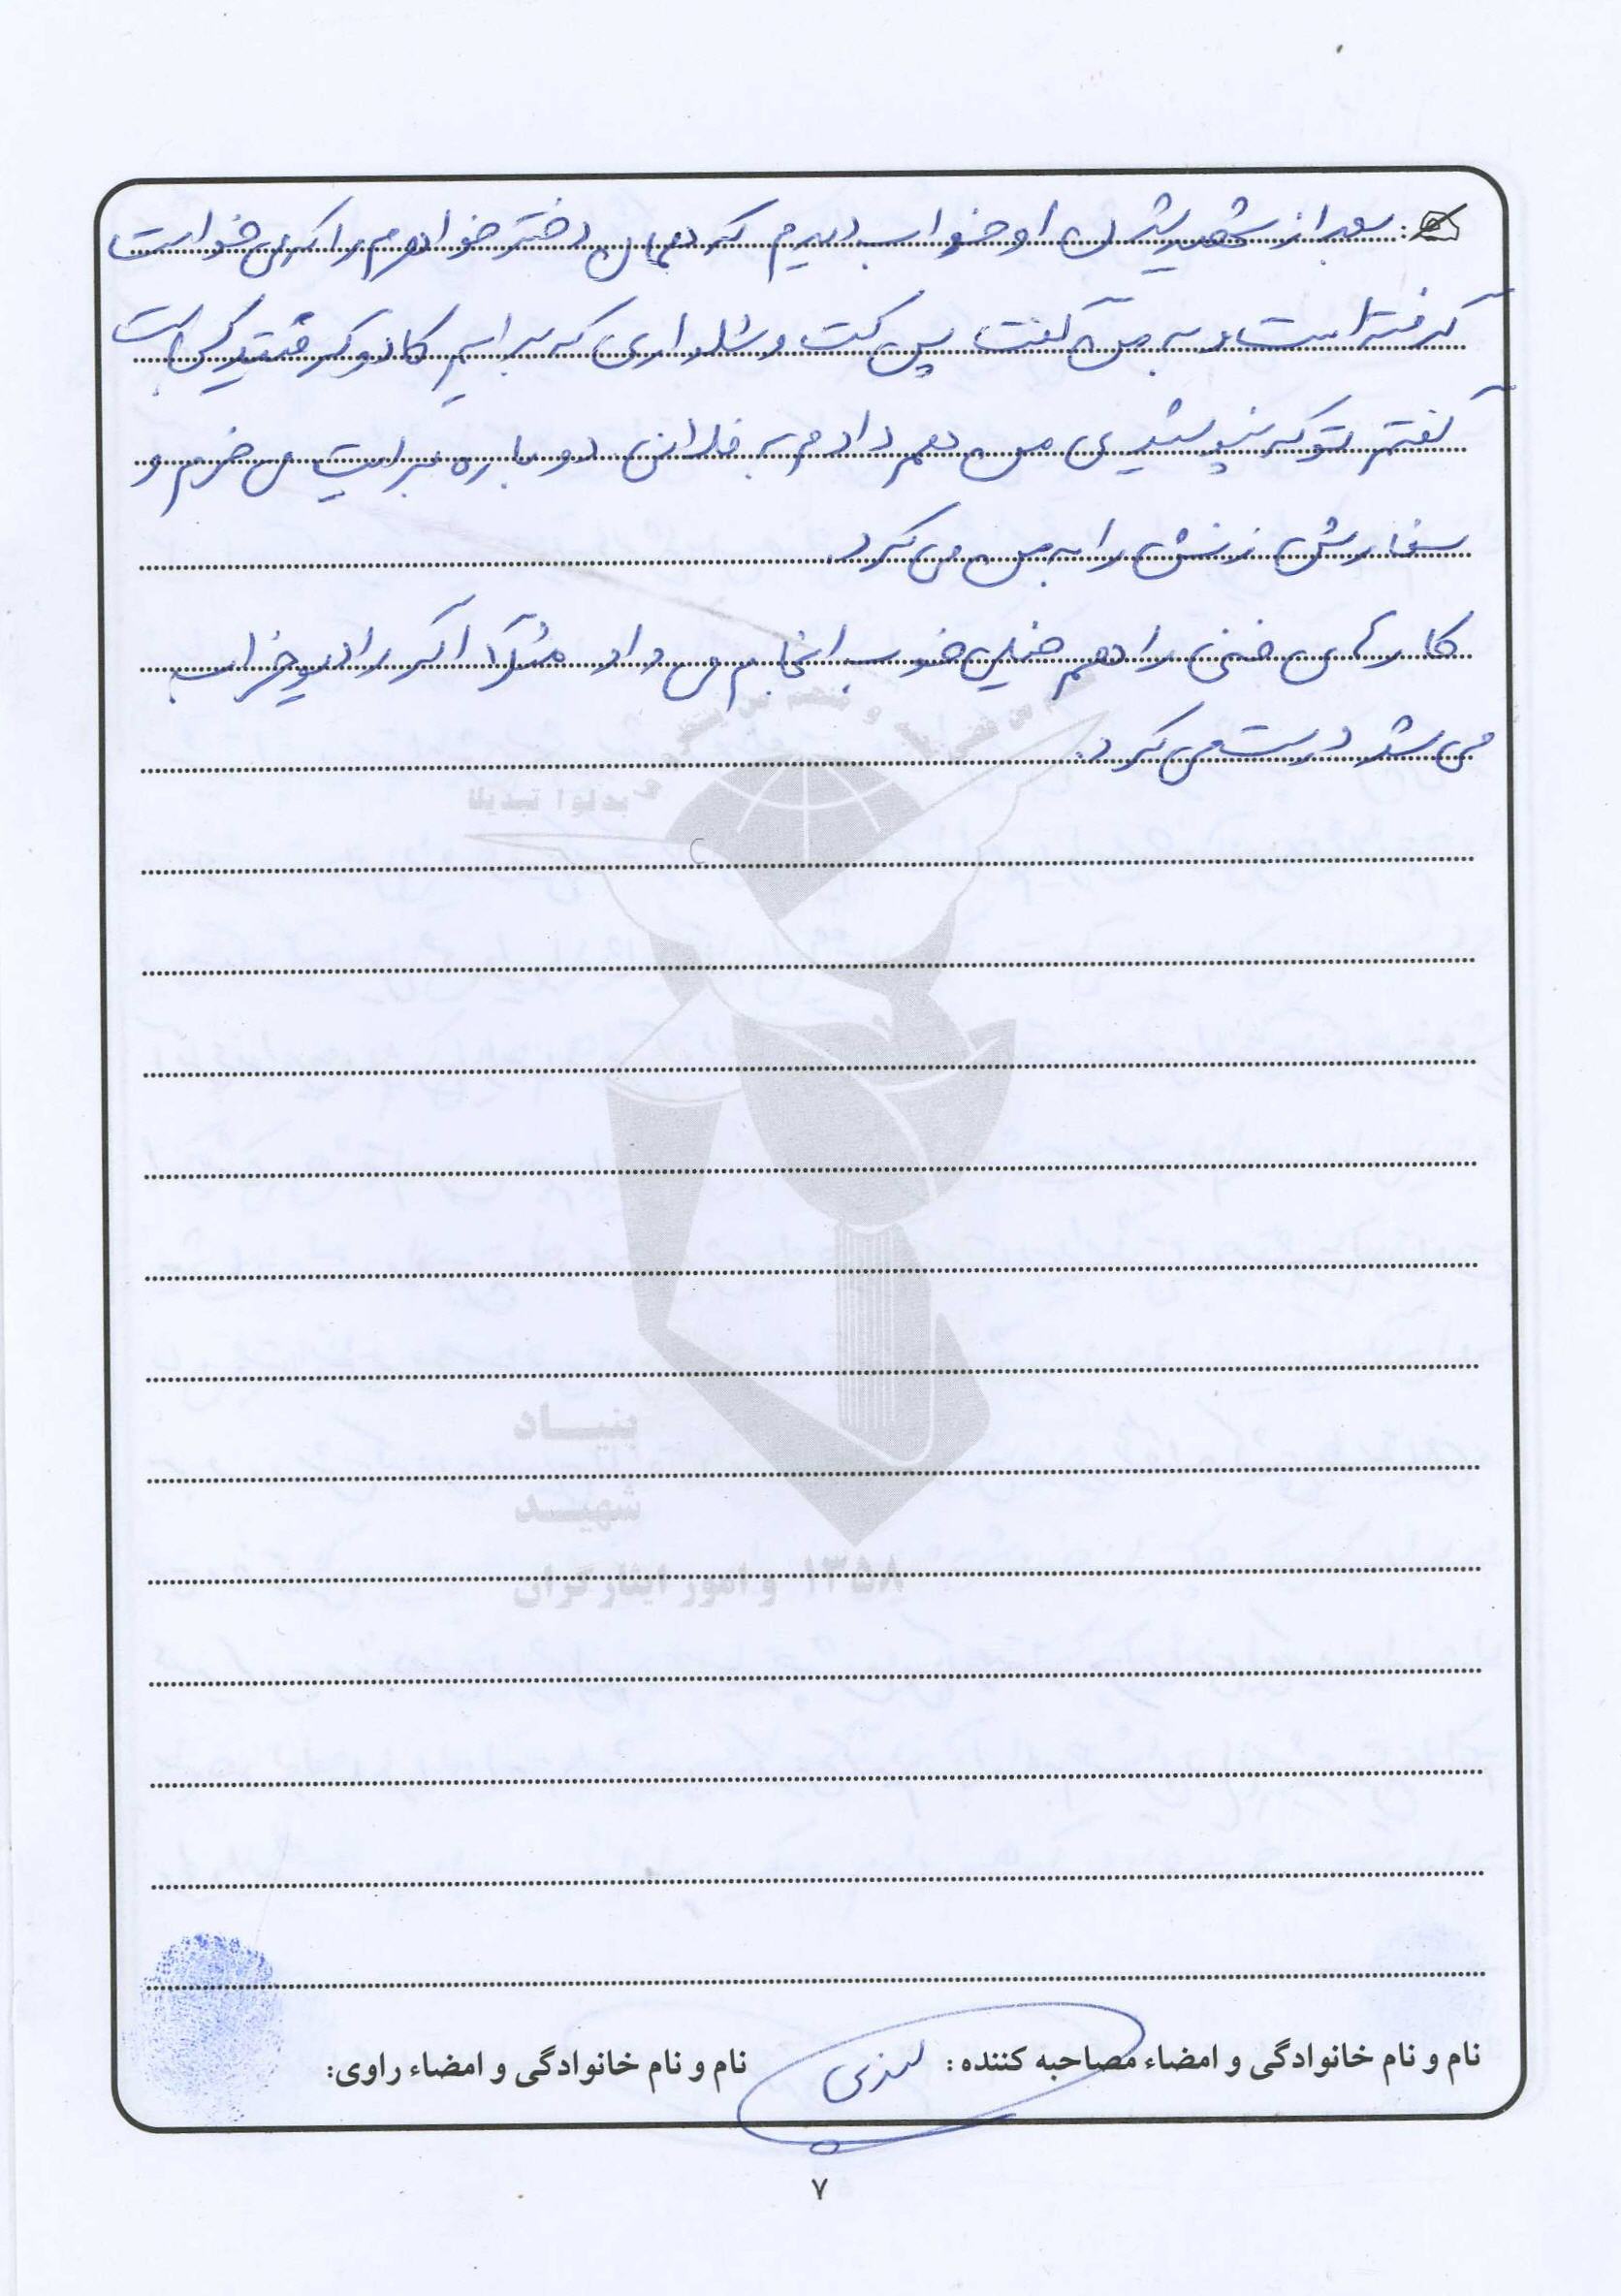 : بعد از شهید شدن او خواب دیدم که همان دختر خواهرم را که می خواست
گرفته است و به من گفت پس کت و شلواری که برایم کادو گرفتید کجاست
گفتم تو که نپوشیدی من هم دادم به فلانی دوباره برایت می خرم و
سفارش زنش را به من می کرد.
کارهای فنی را هم خیلی خوب انجام می داد مثلاً اگر رادیو خراب
می شد درست می کرد.
بدلوا تبدیلا
بنیاد
شهید
و امور ایثارگران ۱۳۵۸
نام و نام خانوادگی و امضاء مصاحبه کننده :
نام و نام خانوادگی و امضاء راوی:
۷